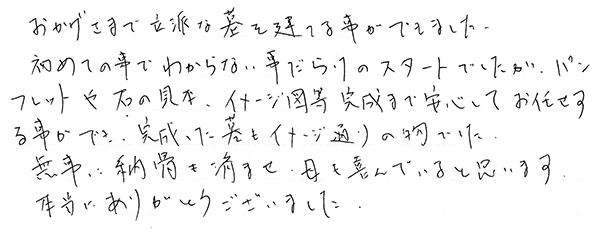 おかげさまで立派な墓を建てる事ができました。
初めての事でわからない事だらけのスタートでしたが、パン
フレットや石の見本、イメージ図等完成まで安心してお任せす
る事ができ、完成した墓もイメージ通りの物でした。
無事に納骨も済ませ、母も喜んでいると思います。
本当にありがとうございました。